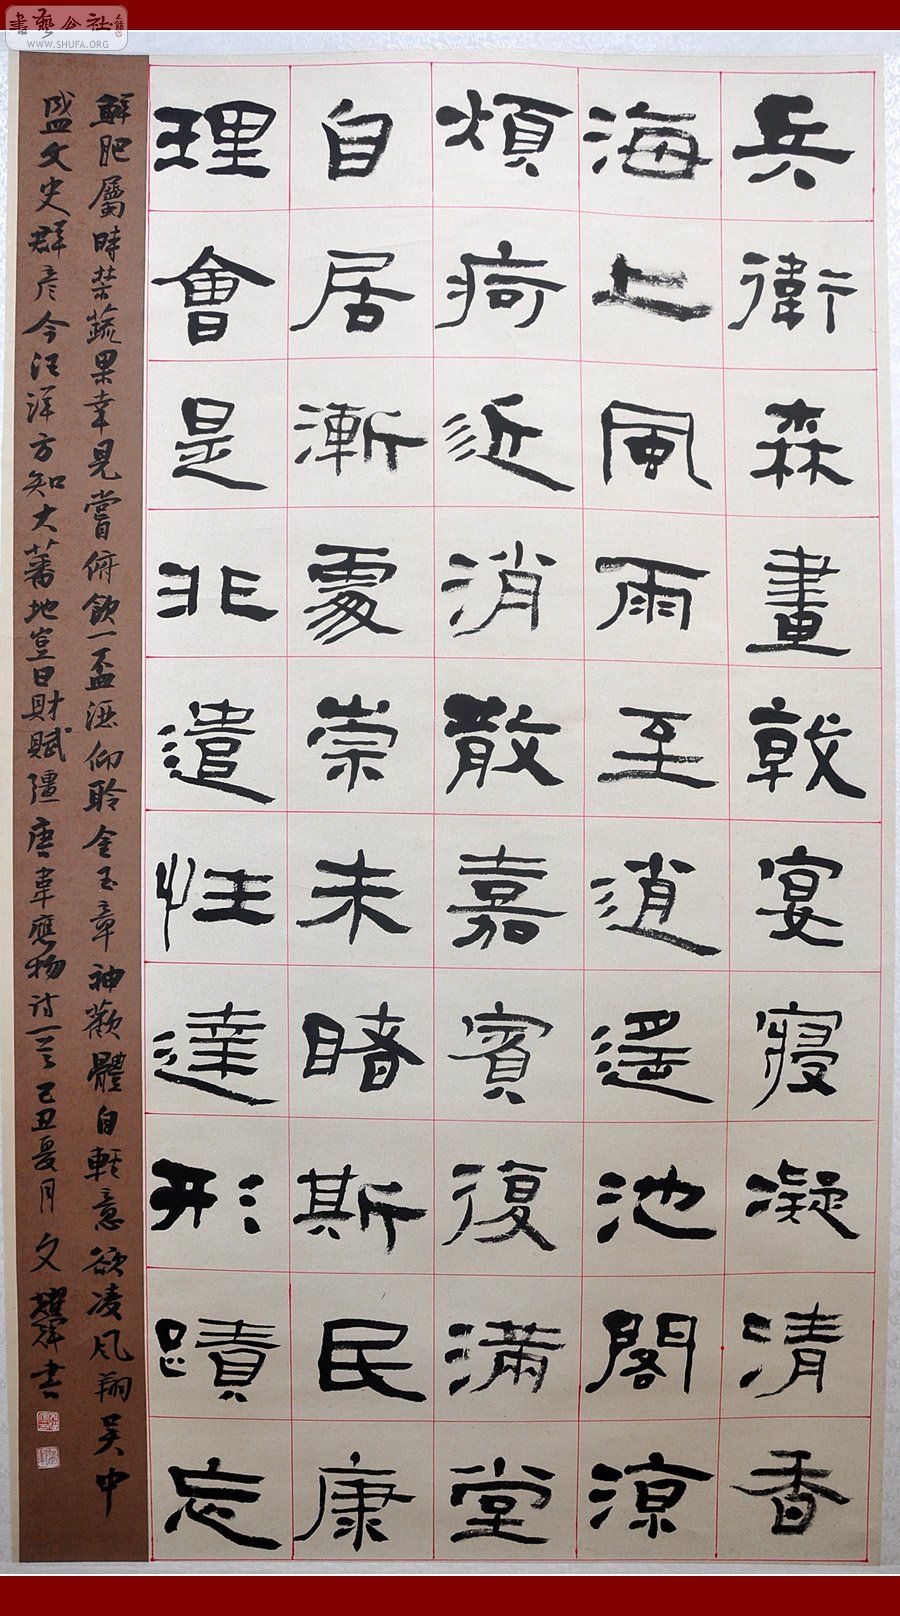 書藝公社
WWW.SHUFA.ORG
兵衛森畫戟宴寢凝清香
海上風雨至逍遥池閣涼
煩疴近消散嘉賓復滿堂
自居漸處崇未睹斯民康
理會是非遣性達形蹟忘
鮮肥屬時禁蔬果幸見嘗俯飲一盃酒仰聆金玉章神歡體自輕意欲凌風翔吳中
盛文史群彦今汪洋方知大蕃地豈曰財賦疆唐韋應物詩一首己丑夏月文書